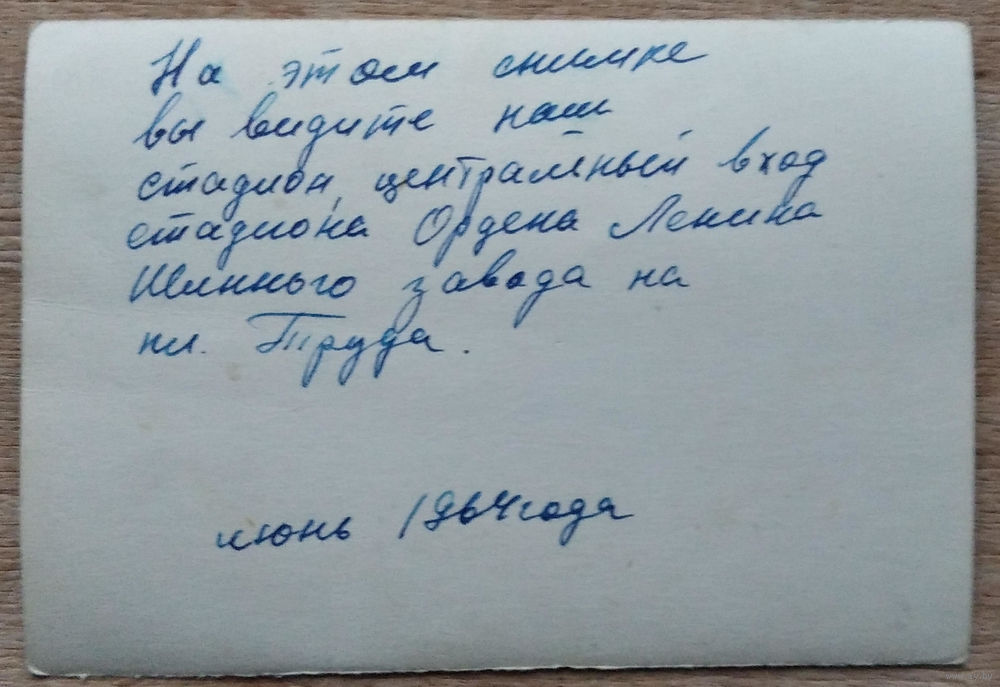 На этом снимке
вы видите наш
стадион, центральный вход
стадиона Ордена Ленина
Шинного завода на
пл. Труда.
июнь 1964 года